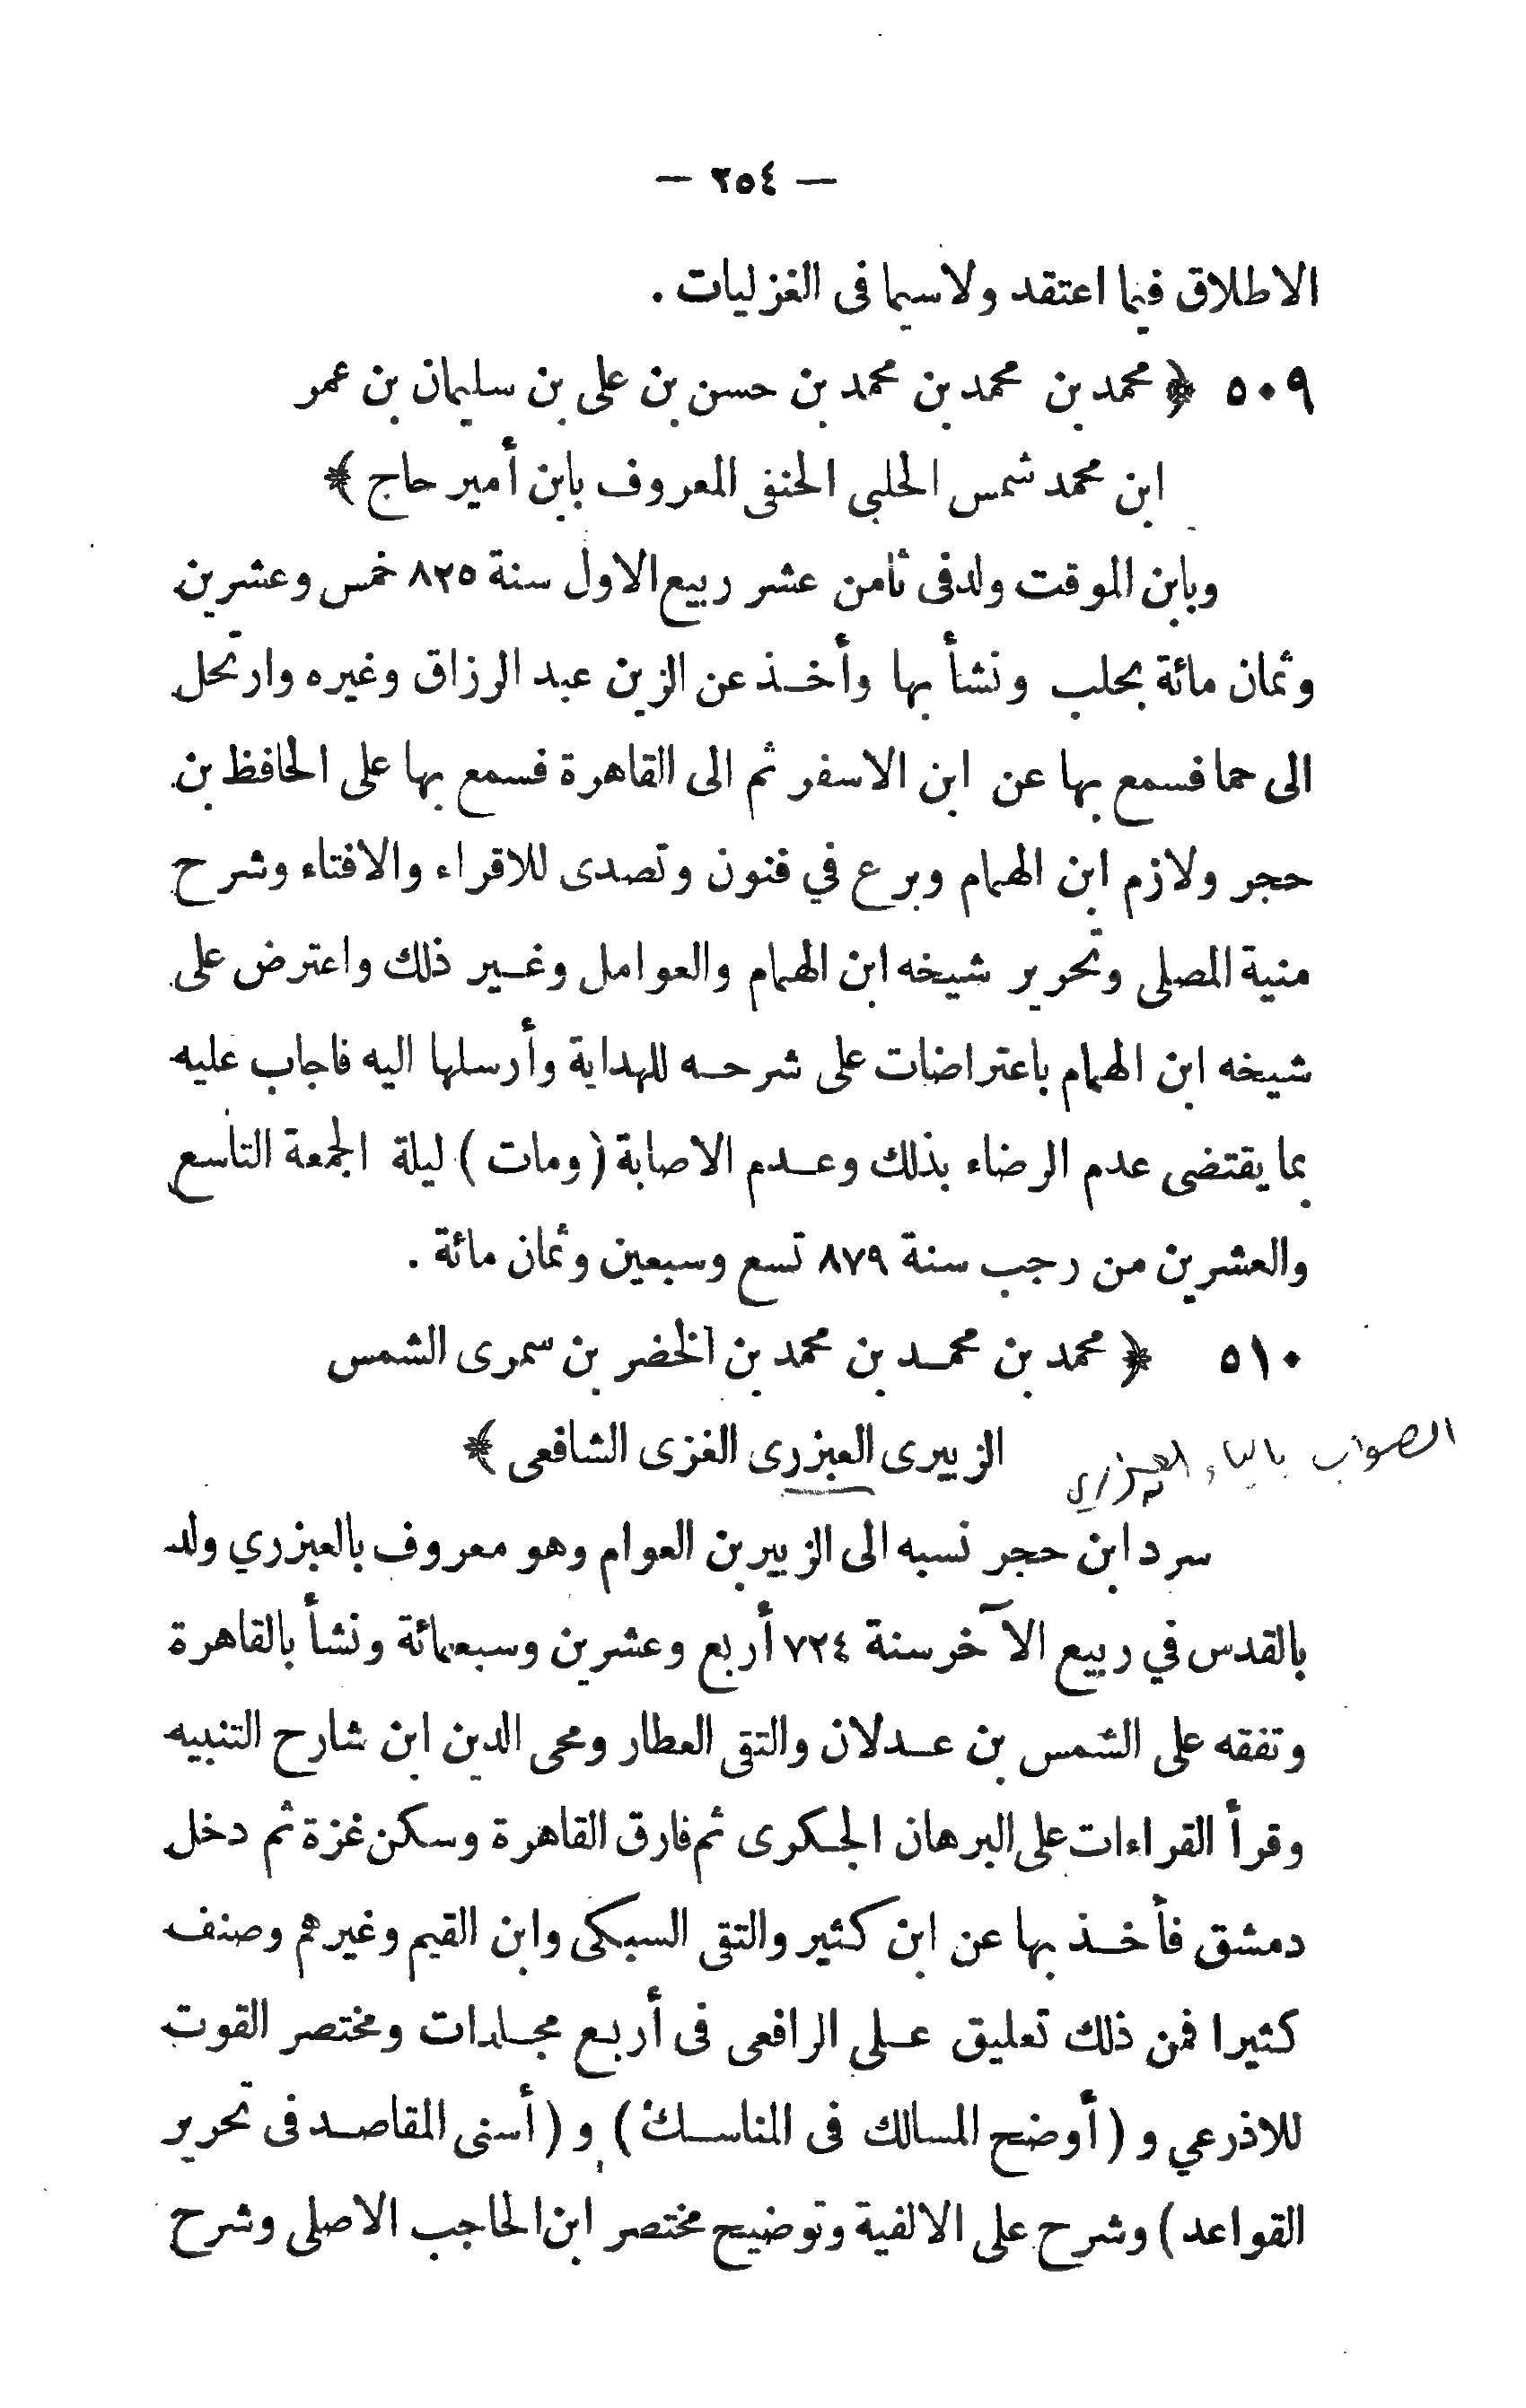 — ٢٥٤ —
الاطلاق فيما اعتقد ولاسيما فى الغزليات .
٥٠٩ ﴿ محمد بن محمد بن محمد بن حسن بن على بن سليمان بن عمر
ابن محمد شمس الحلبي الحنفى المعروف بابن أمير حاج ﴾
وبابن الموقت ولدفى ثامن عشر ربيع الاول سنة ٨٢٥ خمس وعشرين
وثمان مائة بحلب ونشأ بها وأخذ عن الزين عبد الرزاق وغيره وارتحل
الى حما فسمع بها عن ابن الاسفر ثم الى القاهرة فسمع بها على الحافظ بن
حجر ولازم ابن الهمام وبرع في فنون وتصدى للاقراء والافتاء وشرح
منية المصلى وتحرير شيخه ابن الهمام والعوامل وغير ذلك واعترض على
شيخه ابن الهمام باعتراضات على شرحه للهداية وأرسلها اليه فاجاب عليه
بما يقتضى عدم الرضاء بذلك وعدم الاصابة (ومات) ليلة الجمعة التاسع
والعشرين من رجب سنة ٨٧٩ تسع وسبعين وثمان مائة .
٥١٠ ﴿ محمد بن محمد بن محمد بن الخضر بن سمرى الشمس
الزبيرى العبزرى الغزى الشافعى ﴾
الصواب بالياء العيزري
سرد ابن حجر نسبه الى الزبير بن العوام وهو معروف بالعبزري ولد
بالقدس في ربيع الآخر سنة ٧٢٤ أربع وعشرين وسبعمائة ونشأ بالقاهرة
وتفقه على الشمس بن عدلان والتقى العطار ومحى الدين ابن شارح التنبيه
وقرأ القراءات على البرهان الجكرى ثم فارق القاهرة وسكن غزة ثم دخل
دمشق فأخذ بها عن ابن كثير والتقى السبكى وابن القيم وغيرهم وصنف
كثيرا فمن ذلك تعليق على الرافعى فى أربع مجلدات ومختصر القوت
للاذرعي و (أوضح المسالك فى المناسك) و (أسنى المقاصد فى تحرير
القواعد) وشرح على الالفية وتوضيح مختصر ابن الحاجب الاصلى وشرح